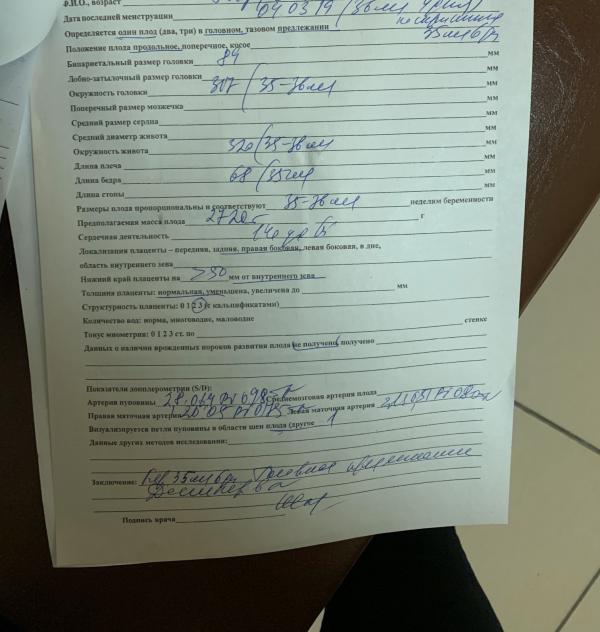 Ф.И.О., возраст
Дата последней менструации 04 03 19 (36 нед
Определяется один плод (два, три) в головном, тазовом предлежании
Положение плода продольное, поперечное, косое 35 нед 6 дн
Бипариетальный размер головки 84 мм
Лобно-затылочный размер головки мм
Окружность головки 307 (35-36 нед мм
Поперечный размер мозжечка мм
Средний размер сердца мм
Средний диаметр живота мм
Окружность живота 320 (35-36 нед мм
Длина плеча мм
Длина бедра 68 (35 нед мм
Длина стопы мм
Размеры плода пропорциональны и соответствуют 35-36 нед неделям беременности
Предполагаемая масса плода 2720 г г
Сердечная деятельность 140 уд
Локализация плаценты – передняя, задняя, правая боковая, левая боковая, в дне,
область внутреннего зева
Нижний край плаценты на >50 мм от внутреннего зева
Толщина плаценты: нормальная, уменьшена, увеличена до мм
Структурность плаценты: 0 1 2 3 (с кальцификатами)
Количество вод: норма, многоводие, маловодие
Тонус миометрия: 0 1 2 3 ст. по стенке
Данных о наличии врожденных пороков развития плода не получено, получено
Показатели допплерометрии (S/D):
Артерия пуповины Среднемозговая артерия плода
Правая маточная артерия Левая маточная артерия
Визуализируется петля пуповины в области шеи плода (другое
Данные других методов исследования:
Заключение: 35 нед 6 дн Головное предлежание
Подпись врача